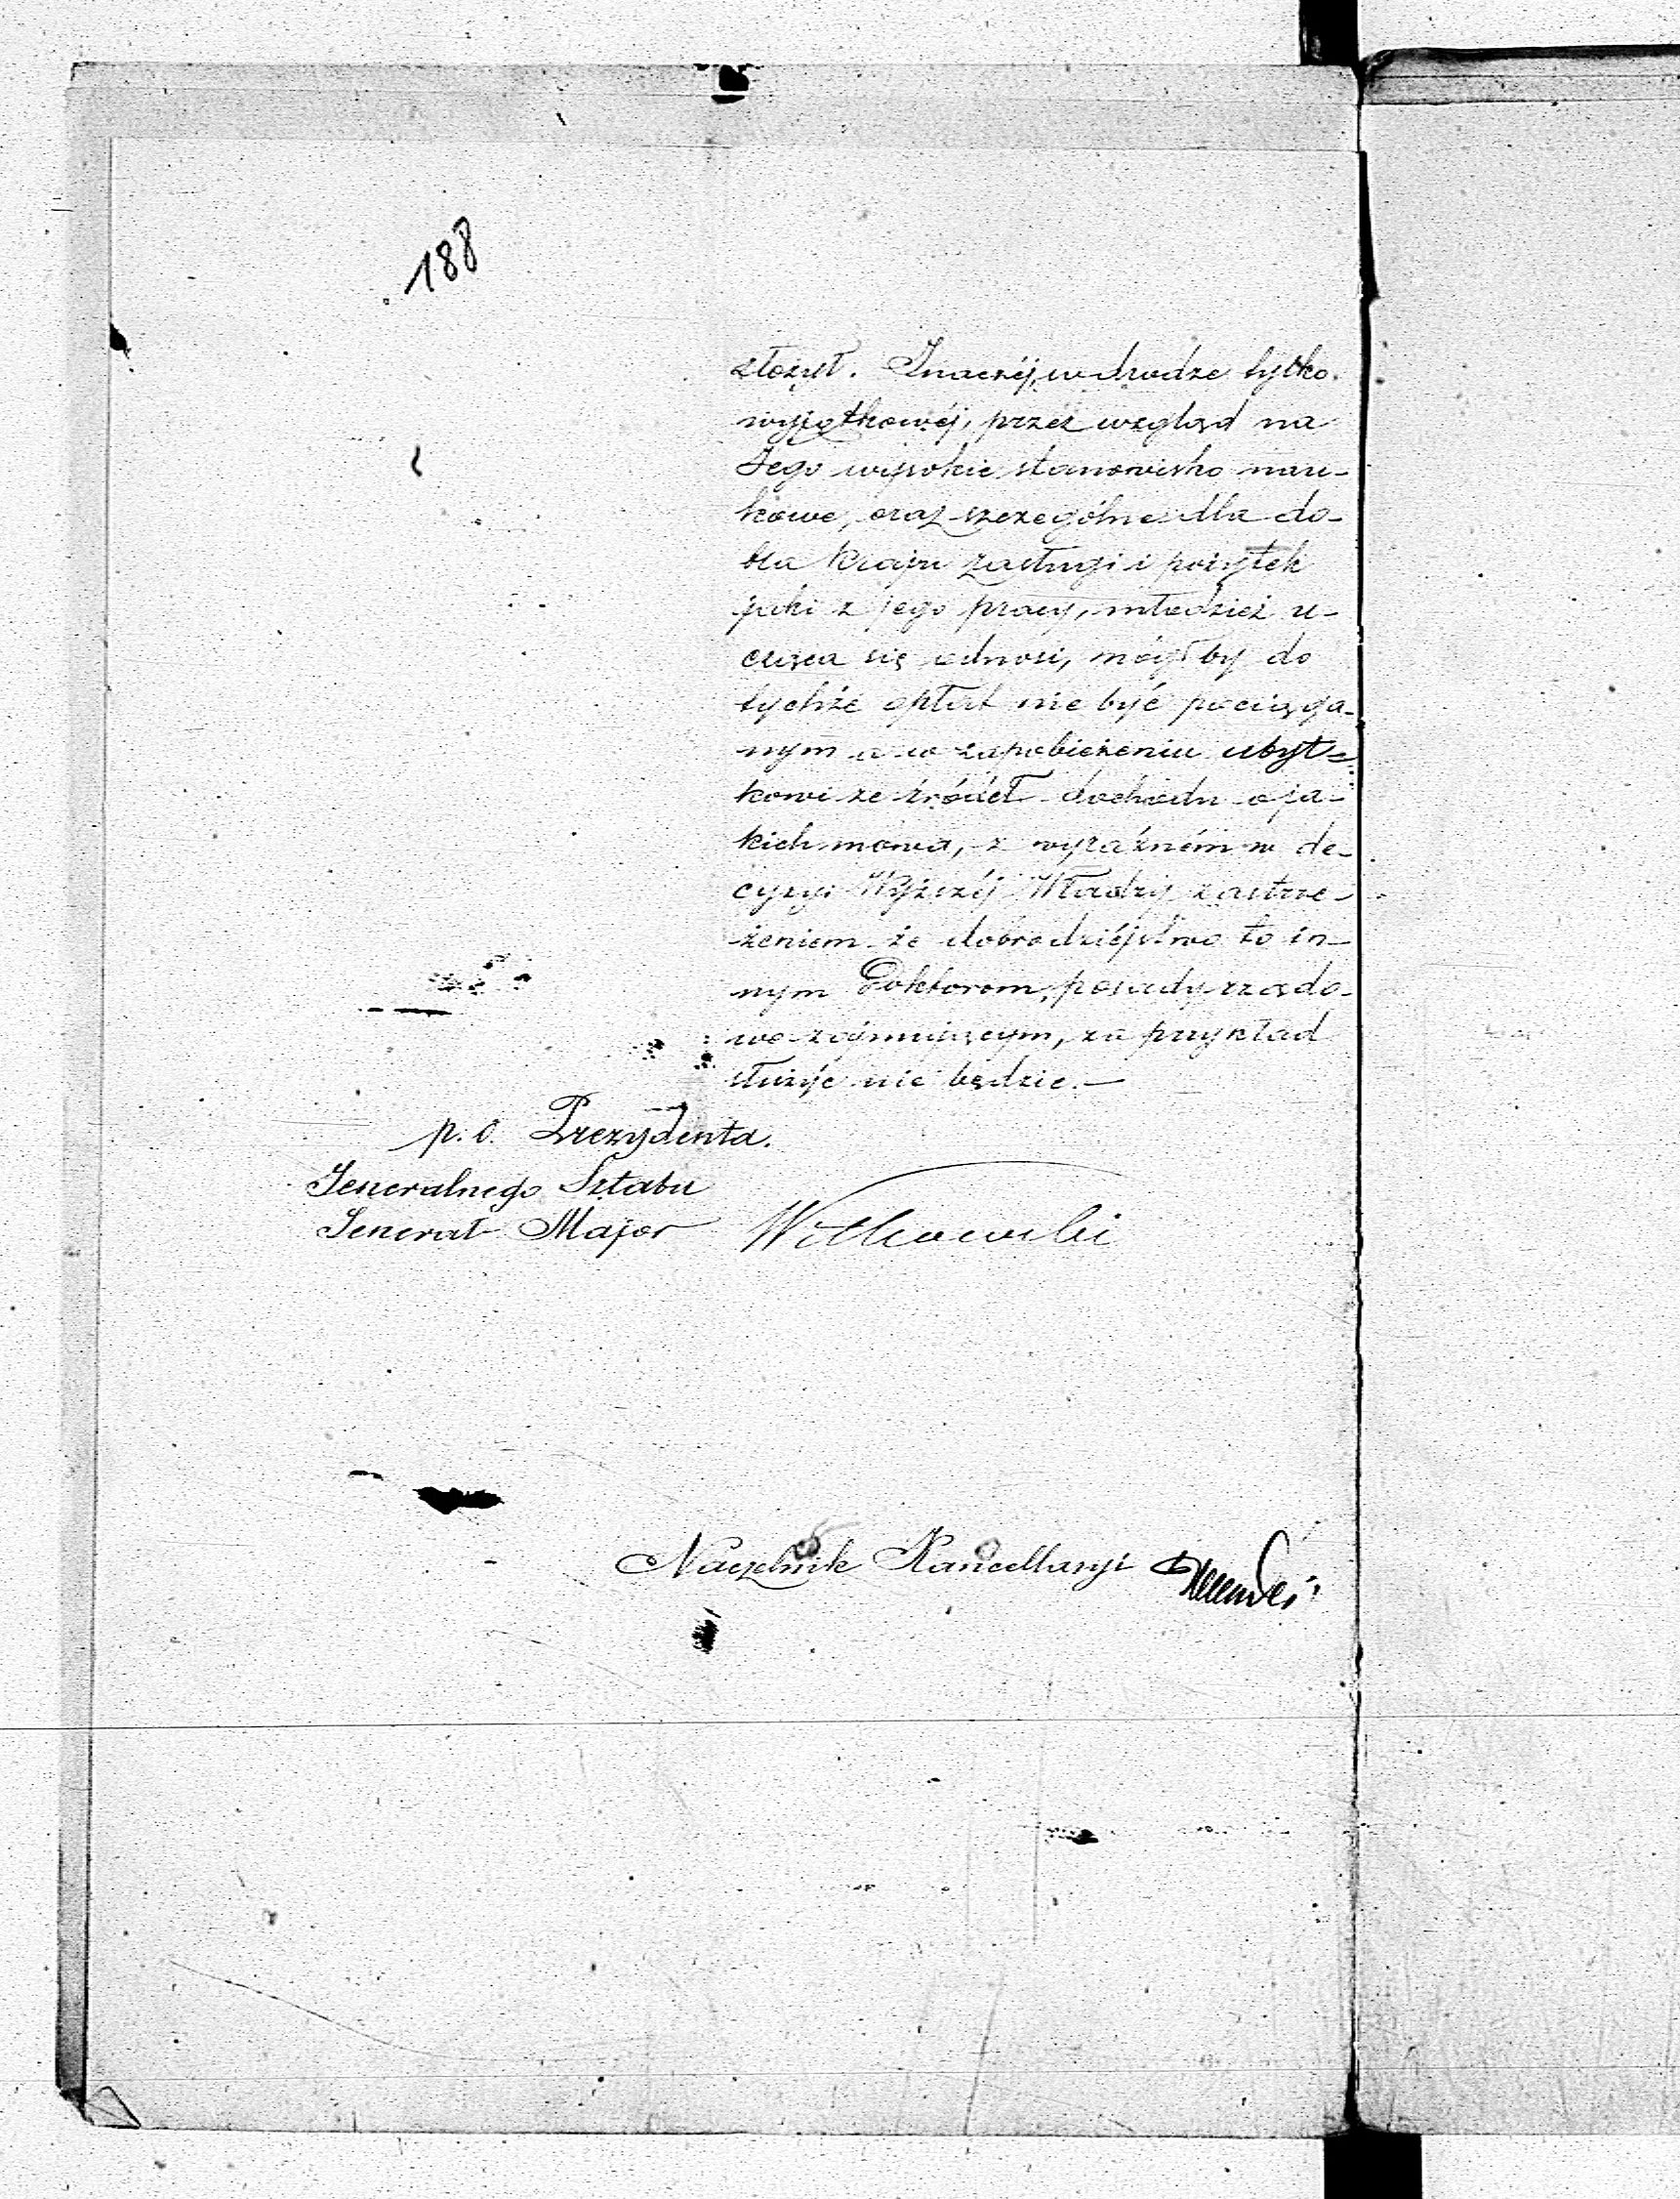 188
złożył. Inaczéj, w drodze tylko
wyjątkowéj, przez wzgląd na
Jego wysokie stanowisko nau-
kowe, oraz szczególne dla do-
bra Kraju zasługi i pożytek
jaki z jego pracy, młodzież u-
cząca się odnosi, mógłby do
tychże opłat nie być pociąga-
nym a w zapobieżeniu ubyt-
kowi ze źródeł dochodu o ja-
kich mowa, z wyraźném w de-
cyzyi Wyższéj Władzy zastrze-
żeniem że dobrodziéjstwo to in-
nym Doktorom, posady rządo-
we zajmującym, za przykład
służyć nie będzie.—
p. o. Prezydenta.
Jeneralnego Sztabu
Jenerał Major Witkowski
Naczelnik Kancellaryi